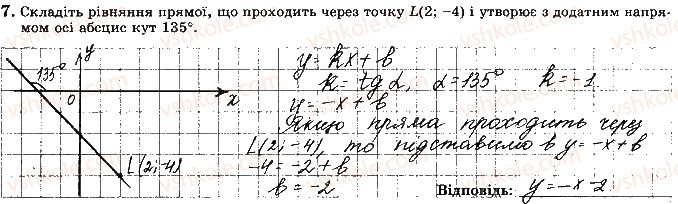 7. Складіть рівняння прямої, що проходить через точку L(2; –4) і утворює з додатним напря-
мом осі абсцис кут 135°.
y
135°
0
x
L(2; -4)
y = kx + b
k = tg α, α = 135° k = -1
y = -x + b
Якщо пряма проходить через
L(2; -4), то підставимо в y = -x + b
-4 = -2 + b
b = -2
Відповідь: y = -x - 2